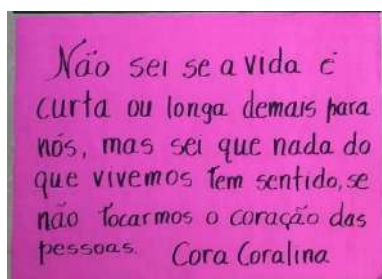 Não sei se a vida é
curta ou longa demais para
nós, mas sei que nada do
que vivemos tem sentido, se
não tocarmos o coração das
pessoas. Cora Coralina